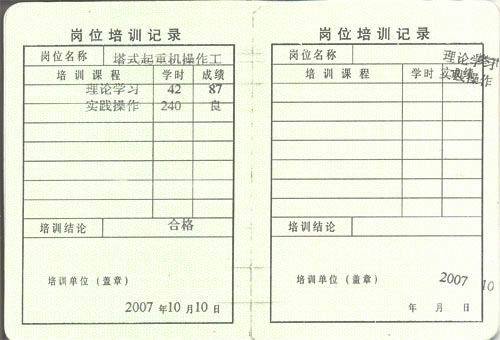 岗位培训记录
岗位名称 塔式起重机操作工
培训课程 学时 成绩
理论学习 42 87
实践操作 240 良
培训结论 合格
培训单位（盖章）
2007 年 10 月 10 日
岗位培训记录
岗位名称
理论学习
培训课程 学时
实践操作
培训结论
培训单位（盖章）
2007 10
年 月 日